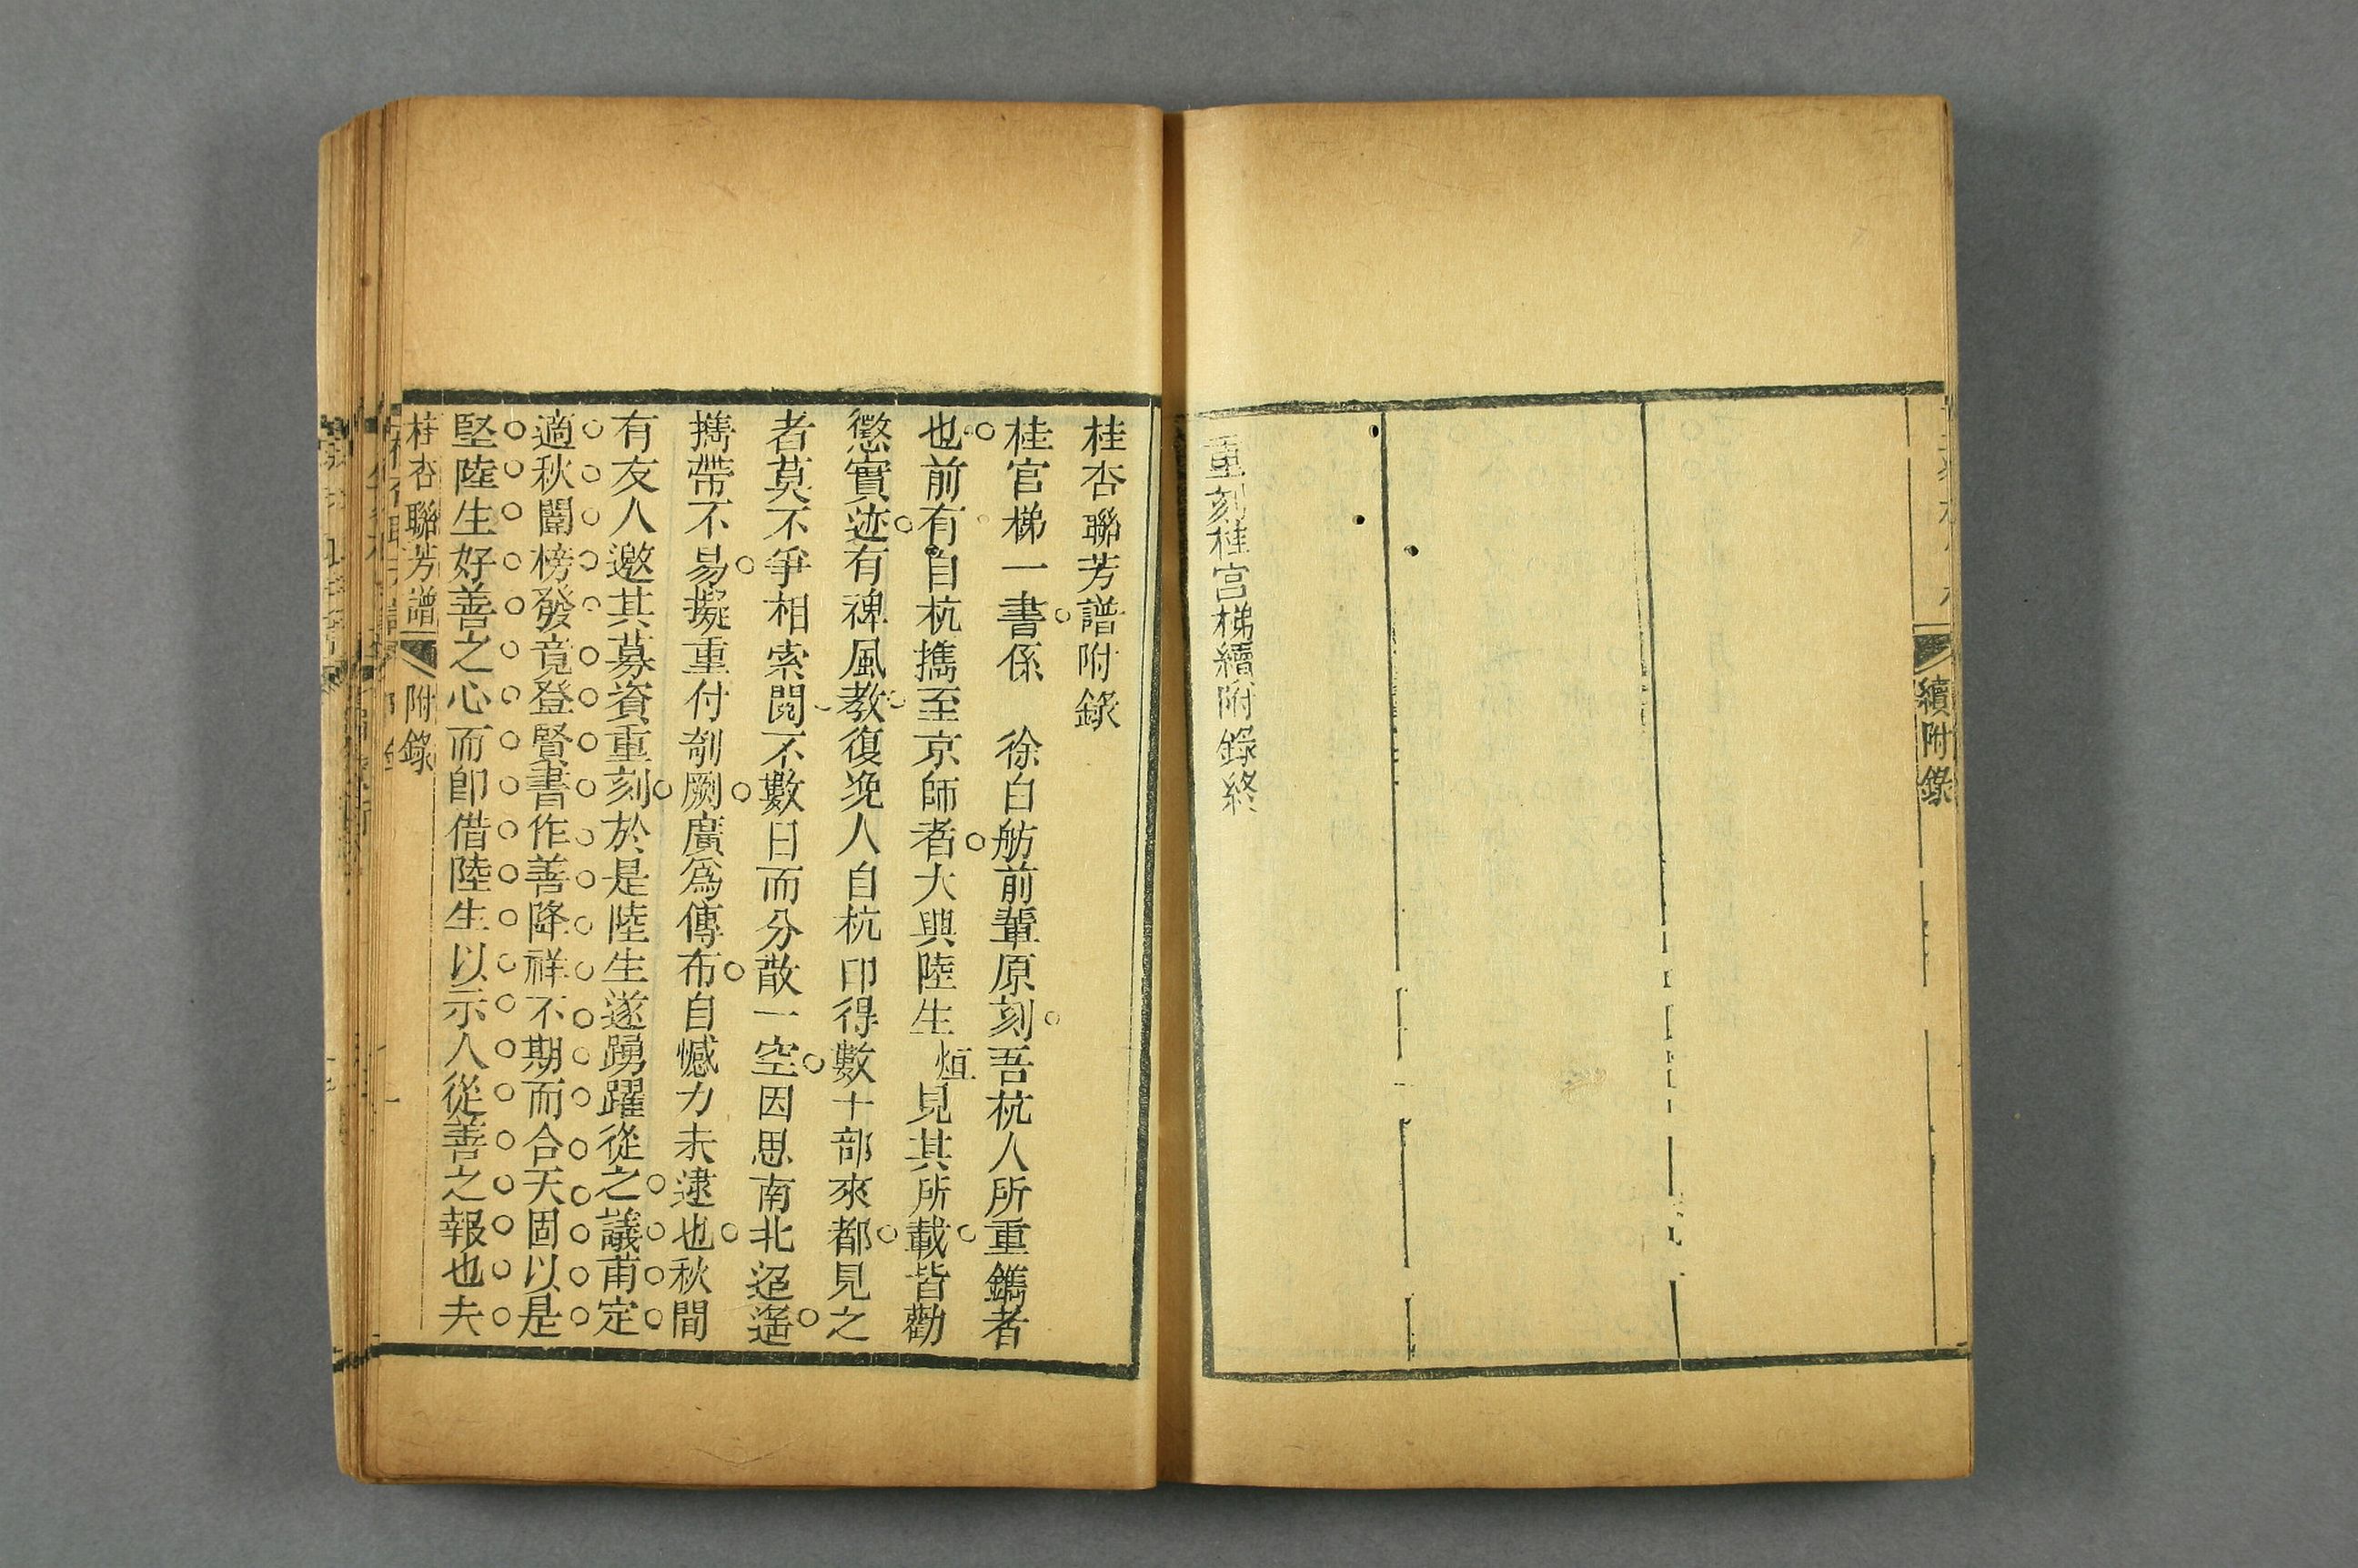 續附錄
重刻桂宮梯續附錄終
桂杏聯芳譜附錄
桂官梯一書係　徐白舫前輩原刻吾杭人所重鐫者
也前有自杭攜至京師者大興陸生烜見其所載皆勸
懲實迹有裨風教復浼人自杭印得數十部來都見之
者莫不爭相索閱不數日而分散一空因思南北迢遙
擕帶不易擬重付剞劂廣爲傳布自憾力未逮也秋間
有友人邀其募資重刻於是陸生遂踴躍從之議甫定
適秋闈榜發竟登賢書作善降祥不期而合天固以是
堅陸生好善之心而卽借陸生以示人從善之報也夫
桂杏聯芳譜　附錄